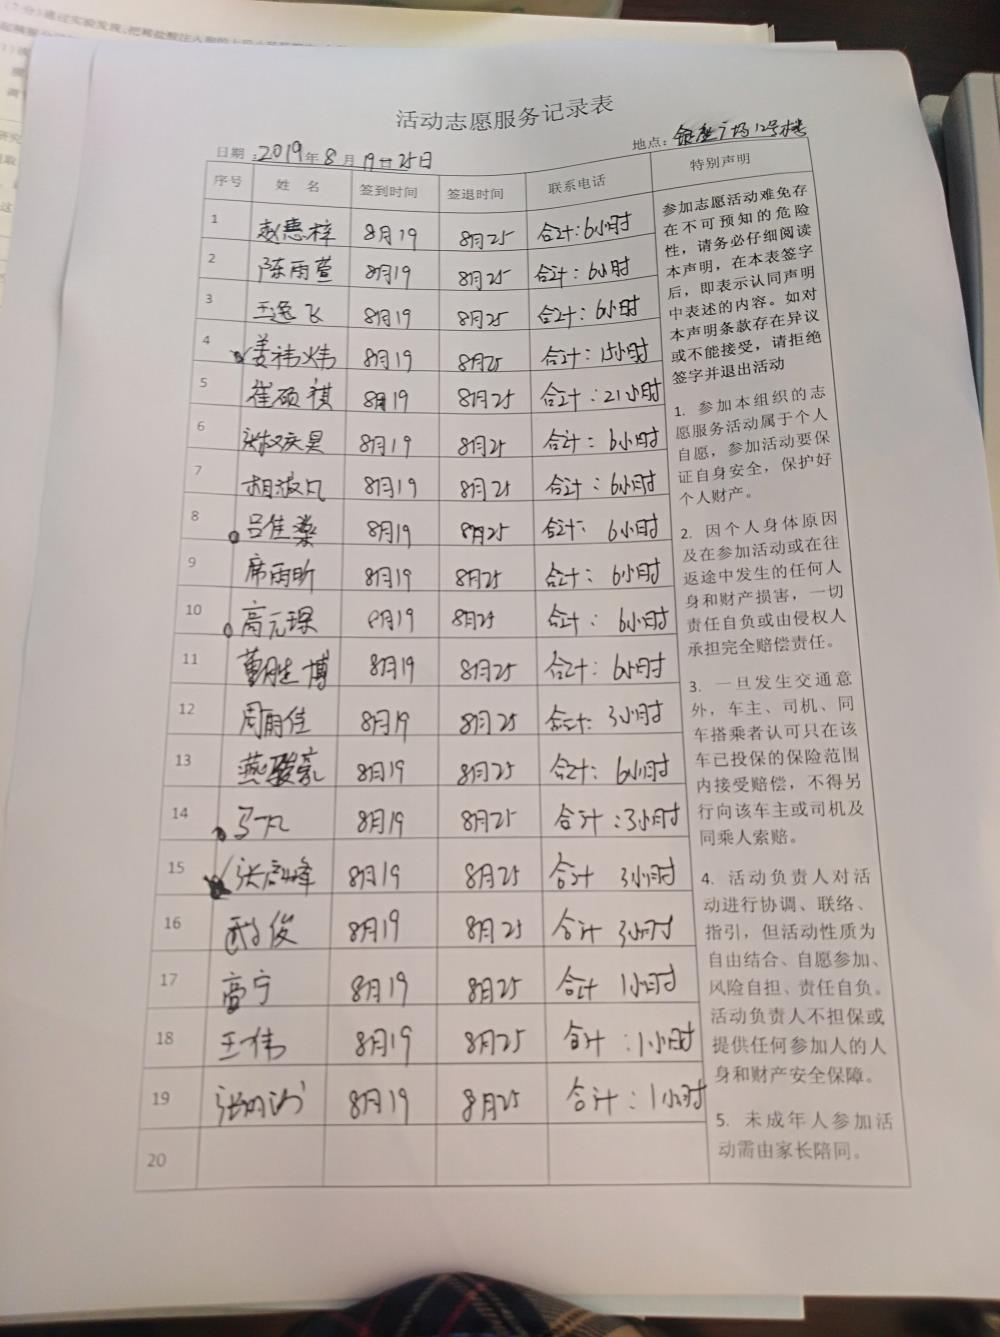 活动志愿服务记录表
日期：2019年8月19日-25日
地点：银座广场12号楼
序号 姓 名 签到时间 签退时间 联系电话 特别声明
1 赵慧梓 8月19 8月25 合计：6小时
2 陈雨萱 8月19 8月25 合计：6小时
3 王逸飞 8月19 8月25 合计：6小时
4 姜祎炜 8月19 8月25 合计：15小时
5 崔硕祺 8月19 8月25 合计：21小时
6 8月19 8月25 合计：6小时
7 胡淑凡 8月19 8月25 合计：6小时
8 吕佳燊 8月19 8月25 合计：6小时
9 席雨昕 8月19 8月25 合计：6小时
10 高元琛 8月19 8月25 合计：6小时
11 曹胜博 8月19 8月25 合计：6小时
12 周雨佳 8月19 8月25 合计：3小时
13 燕骏豪 8月19 8月25 合计：6小时
14 马一凡 8月19 8月25 合计：3小时
15 张启峰 8月19 8月25 合计 3小时
16 俊 8月19 8月25 合计 3小时
17 高宁 8月19 8月25 合计 1小时
18 王伟 8月19 8月25 合计：1小时
19 8月19 8月25 合计：1小时
20
参加志愿活动难免存
在不可预知的危险
性，请务必仔细阅读
本声明，在本表签字
后，即表示认同声明
中表述的内容。如对
本声明条款存在异议
或不能接受，请拒绝
签字并退出活动
1. 参加本组织的志
愿服务活动属于个人
自愿，参加活动要保
证自身安全，保护好
个人财产。
2. 因个人身体原因
及在参加活动或在往
返途中发生的任何人
身和财产损害，一切
责任自负或由侵权人
承担完全赔偿责任。
3. 一旦发生交通意
外，车主、司机、同
车搭乘者认可只在该
车已投保的保险范围
内接受赔偿，不得另
行向该车主或司机及
同乘人索赔。
4. 活动负责人对活
动进行协调、联络、
指引，但活动性质为
自由结合、自愿参加、
风险自担、责任自负。
活动负责人不担保或
提供任何参加人的人
身和财产安全保障。
5. 未成年人参加活
动需由家长陪同。